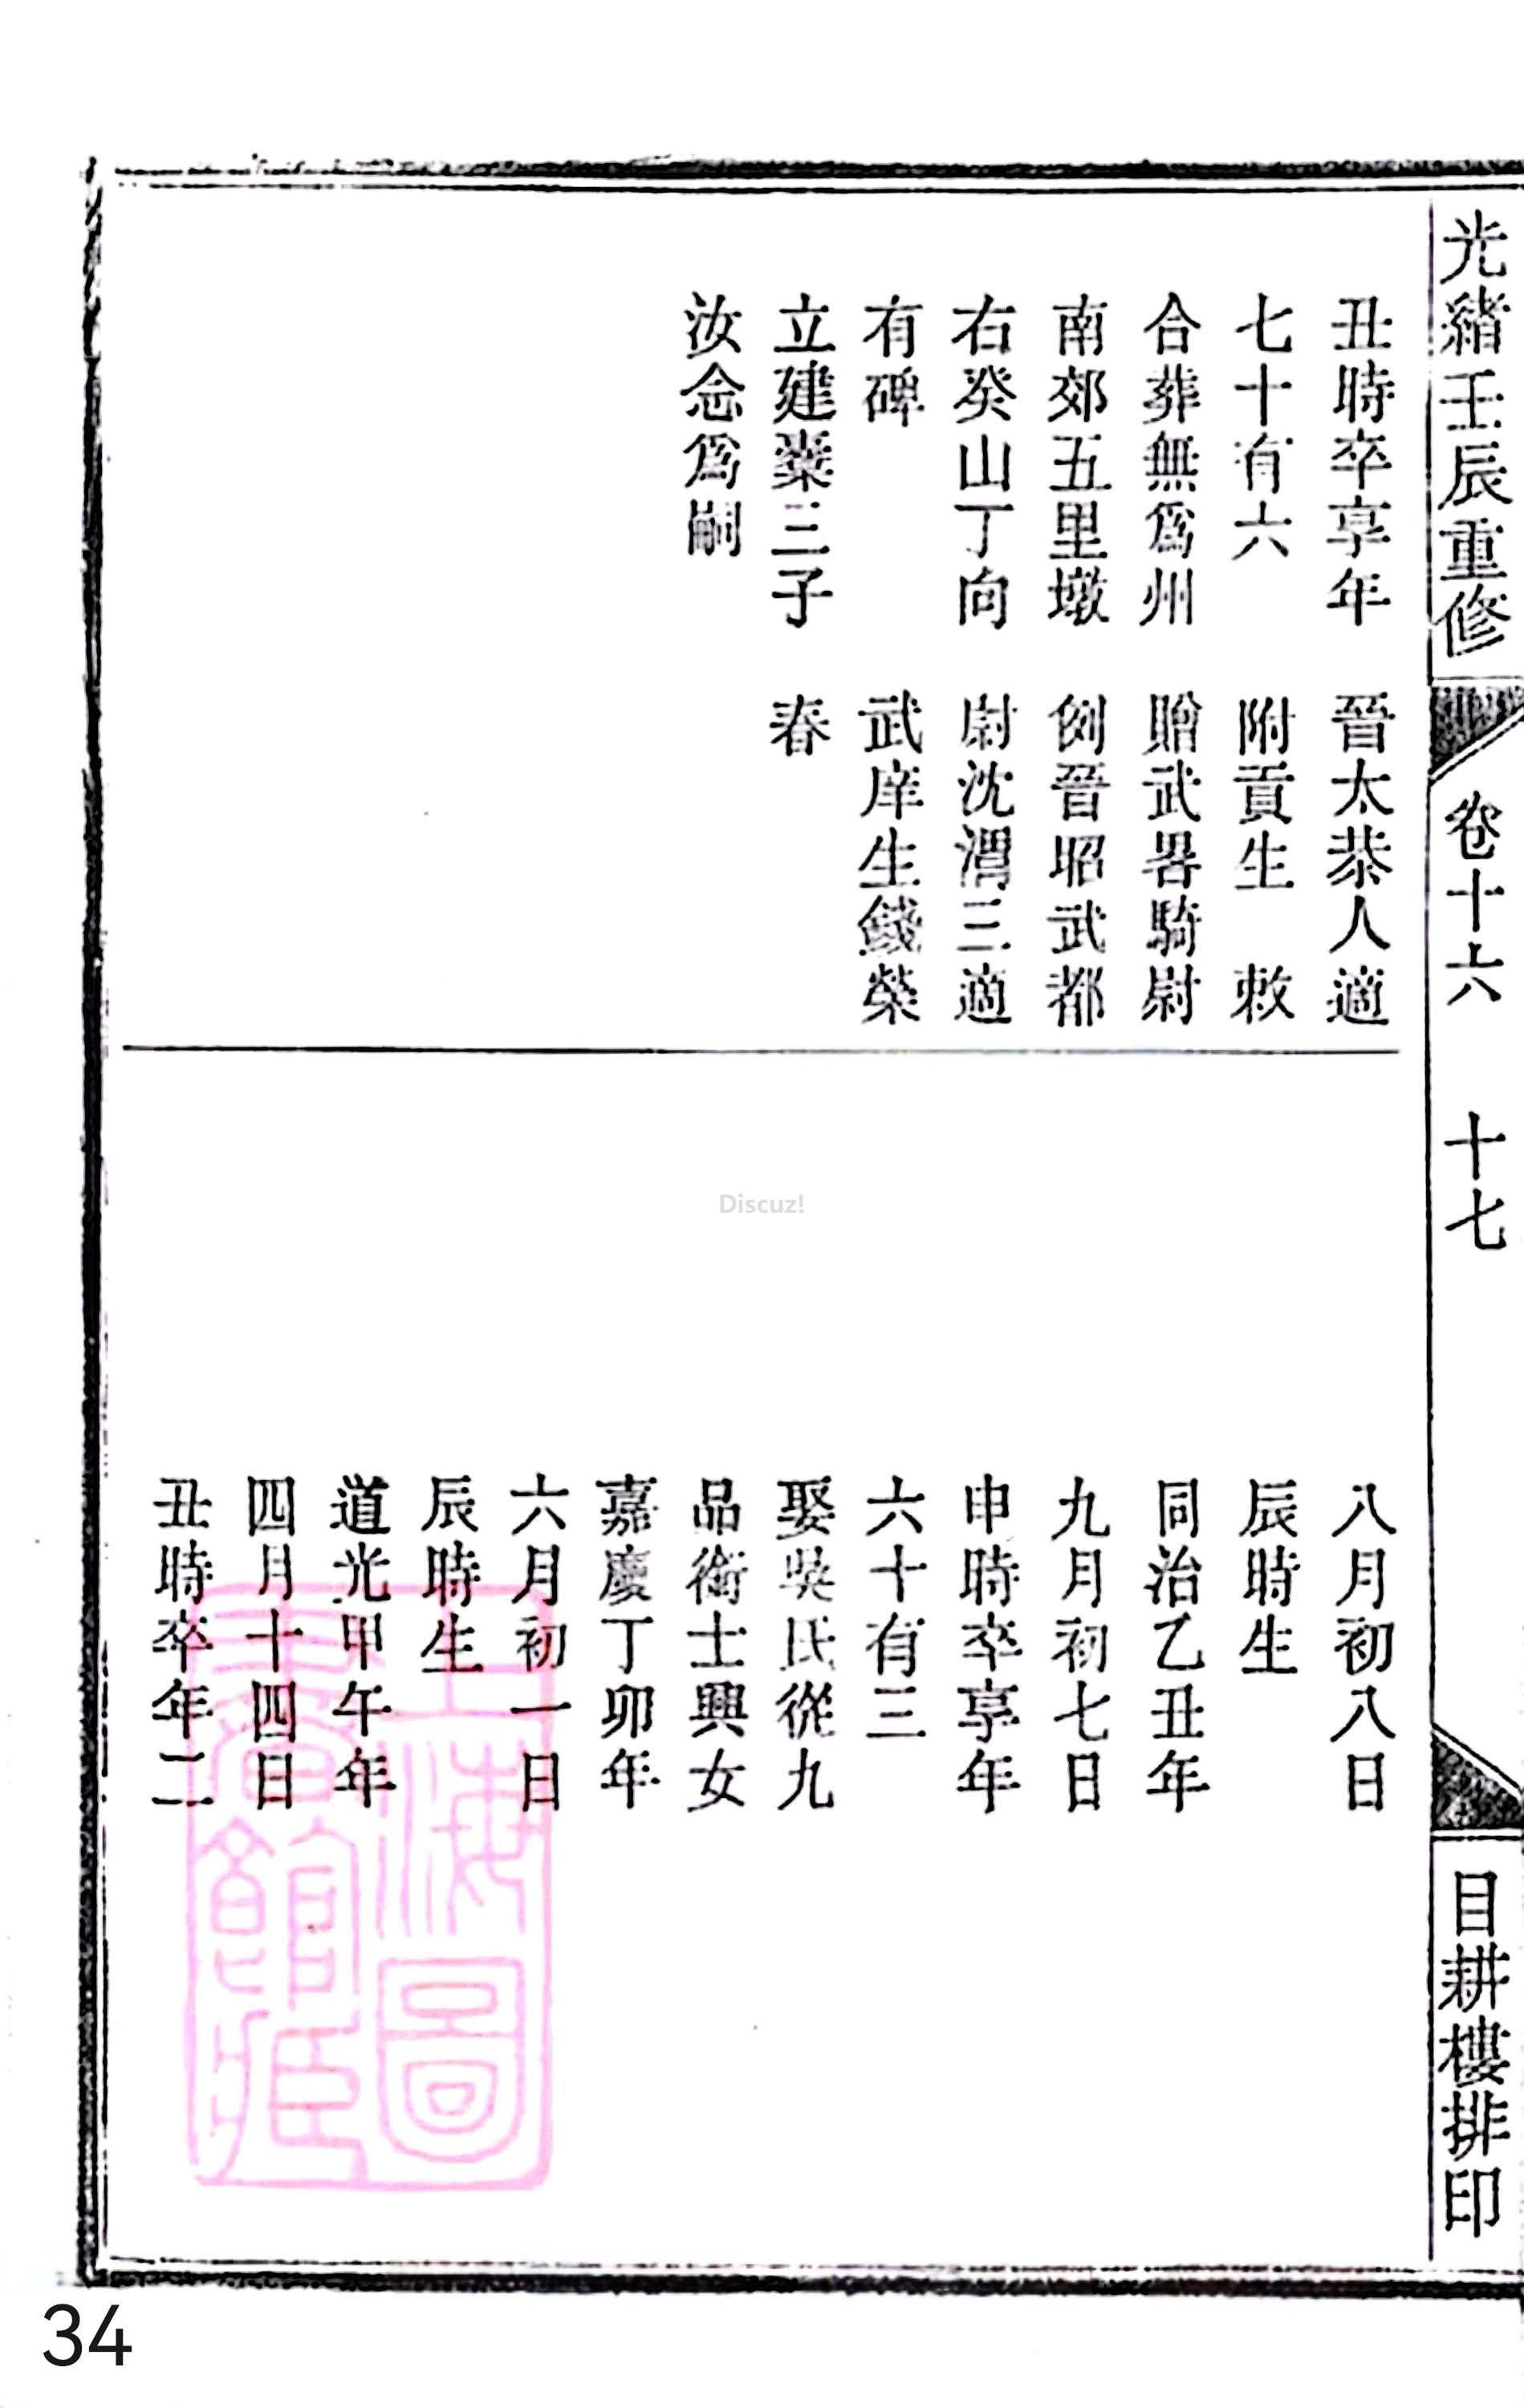 光緒壬辰重修
卷十六
十七
目耕樓排印
丑時卒享年
七十有六
合葬無爲州
南郊五里墩
右癸山丁向
有碑
立建棻三子
汝念爲嗣
晉太恭人適
附貢生　敕
贈武畧騎尉
例晉昭武都
尉沈渭三適
武庠生錢榮
春
八月初八日
辰時生
同治乙丑年
九月初七日
申時卒享年
六十有三
娶吳氏從九
品銜士興女
嘉慶丁卯年
六月初一日
辰時生
道光甲午年
四月十四日
丑時卒年二
上海圖書館藏
Discuz!
34